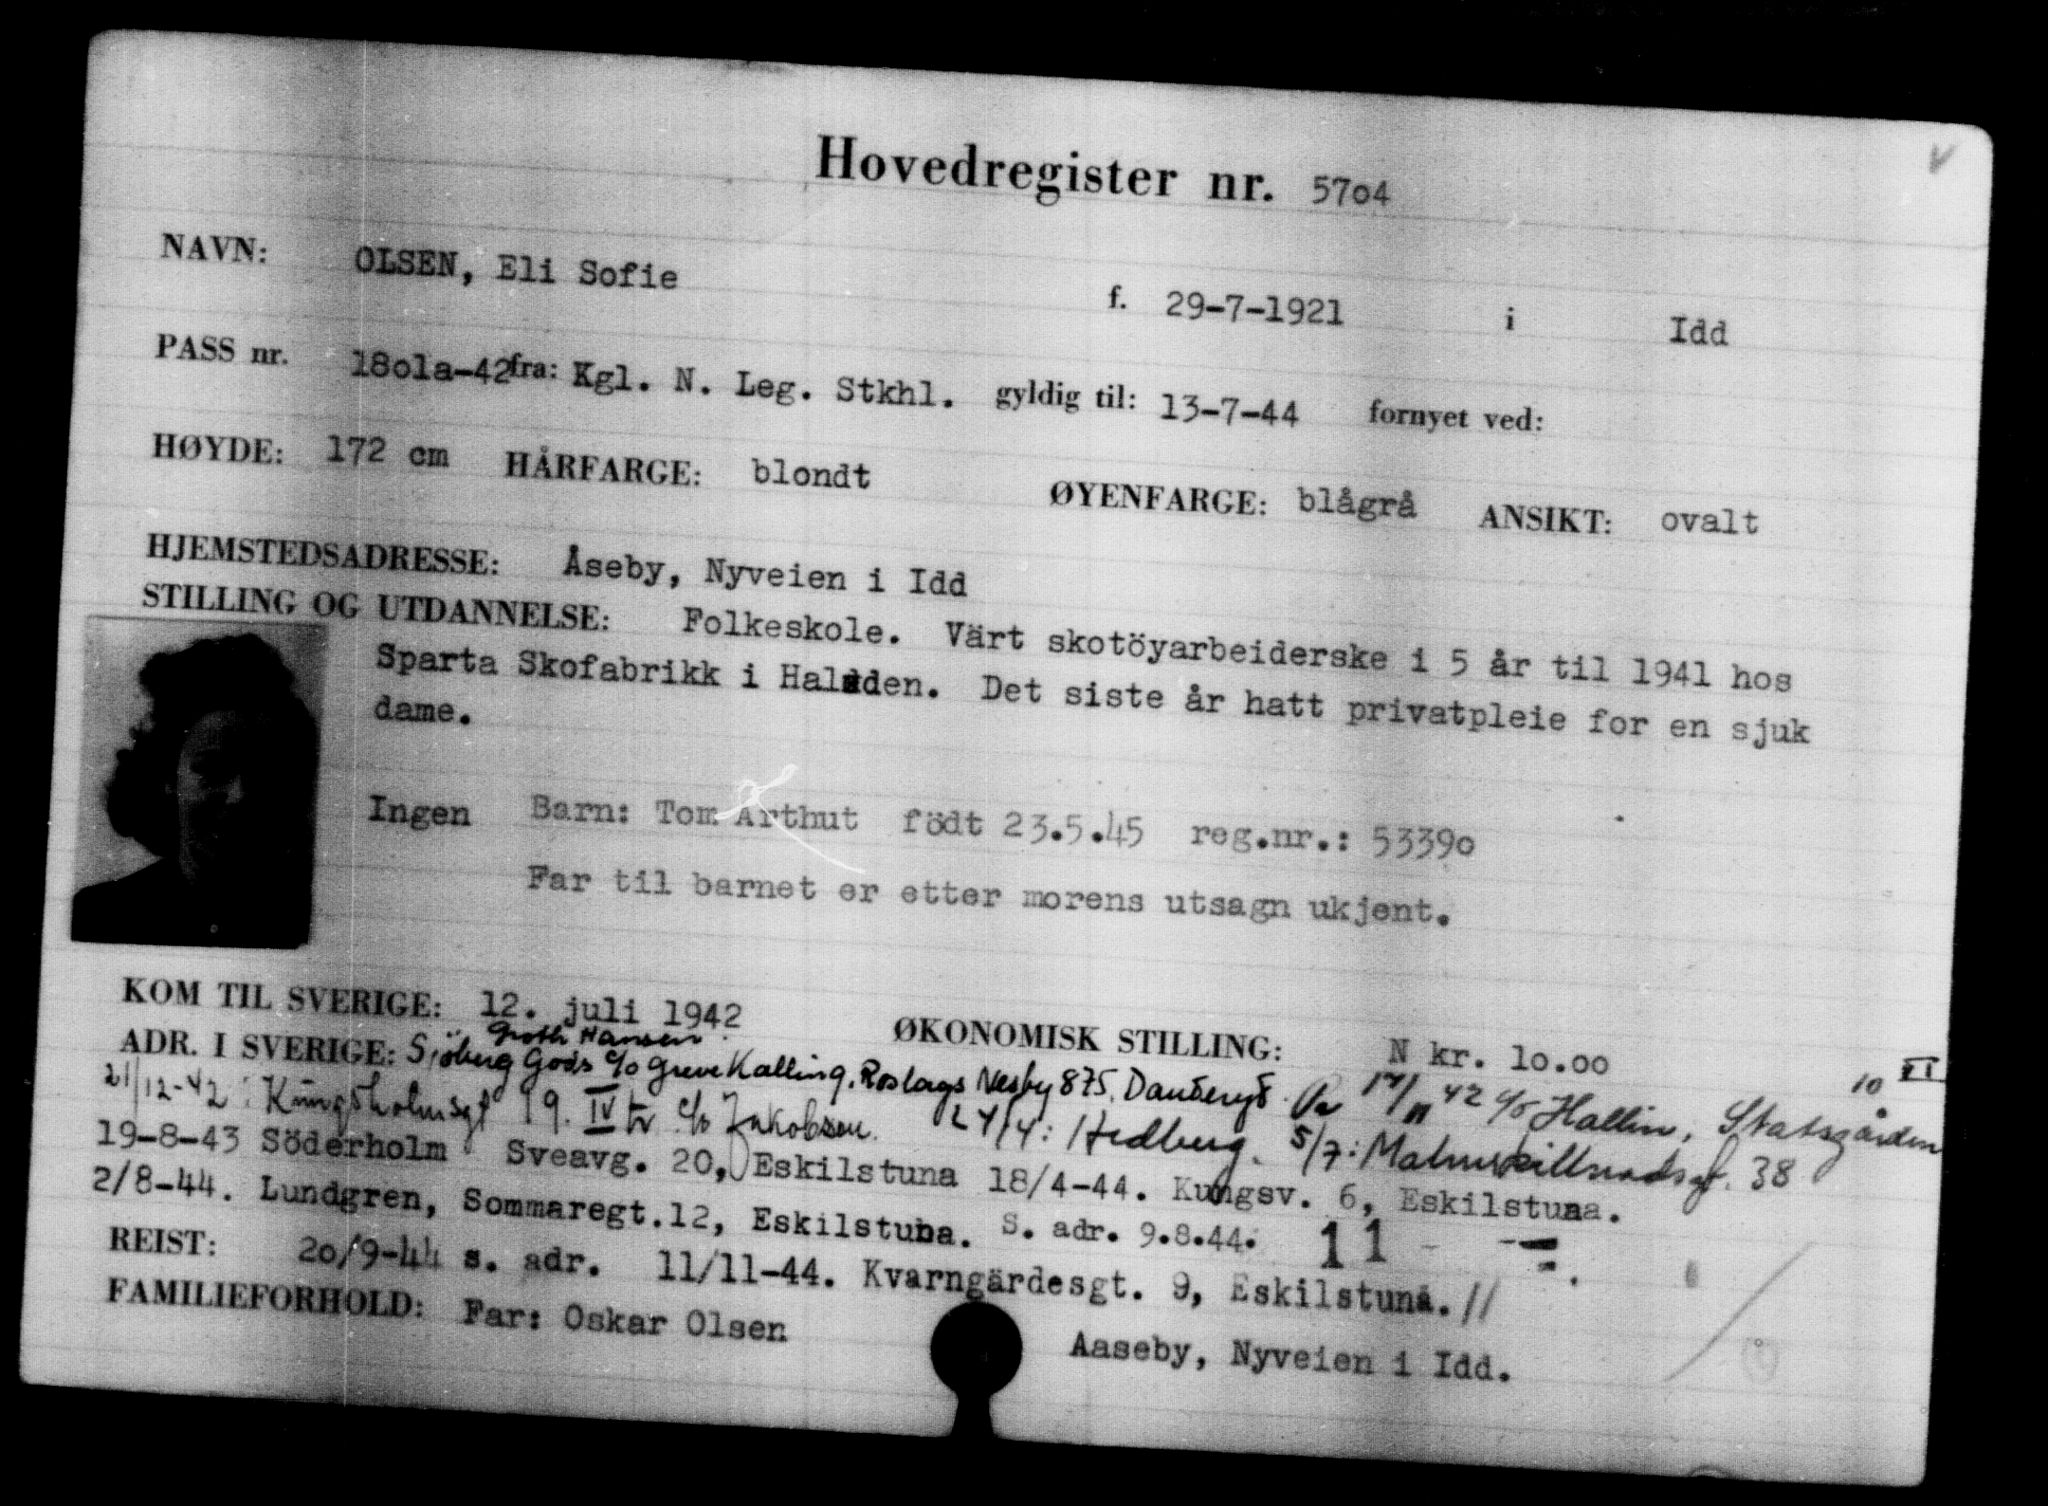 Hovedregister nr. 5704
NAVN: OLSEN, Eli Sofie f. 29-7-1921 i Idd
PASS nr. 18o1a-42 fra: Kgl. N. Leg. Stkhl. gyldig til: 13-7-44 fornyet ved:
HØYDE: 172 cm HÅRFARGE: blondt ØYENFARGE: blågrå ANSIKT: ovalt
HJEMSTEDSADRESSE: Åseby, Nyveien i Idd
STILLING OG UTDANNELSE: Folkeskole. Värt skotöyarbeiderske i 5 år til 1941 hos
Sparta Skofabrikk i Halden. Det siste år hatt privatpleie for en sjuk
dame.
Ingen Barn: Tom Arthut födt 23.5.45 reg.nr.: 5339o
Far til barnet er etter morens utsagn ukjent.
KOM TIL SVERIGE: 12. juli 1942 ØKONOMISK STILLING: N kr. 1o.oo
Groth Hansen
ADR. I SVERIGE: Sjöberg Gods c/o Greve Kalling, Roslags Nesby 875, Danderyd. 17/11 42 c/o Hallin, Statsgården 10 VI
21/12-42: Kungsholmsgt 19. IV tr c/o Jakobsen. 24/4: Hedberg. 5/7: Malmskillnadsgt. 38
19-8-43 Söderholm Sveavg. 20, Eskilstuna 18/4-44. Kungsv. 6, Eskilstuna.
2/8-44. Lundgren, Sommaregt.12, Eskilstuna. S. adr. 9.8.44. 11 - -=.
REIST: 2o/9-44 s. adr. 11/11-44. Kvarngärdesgt. 9, Eskilstuna. //
FAMILIEFORHOLD: Far: Oskar Olsen Aaseby, Nyveien i Idd.